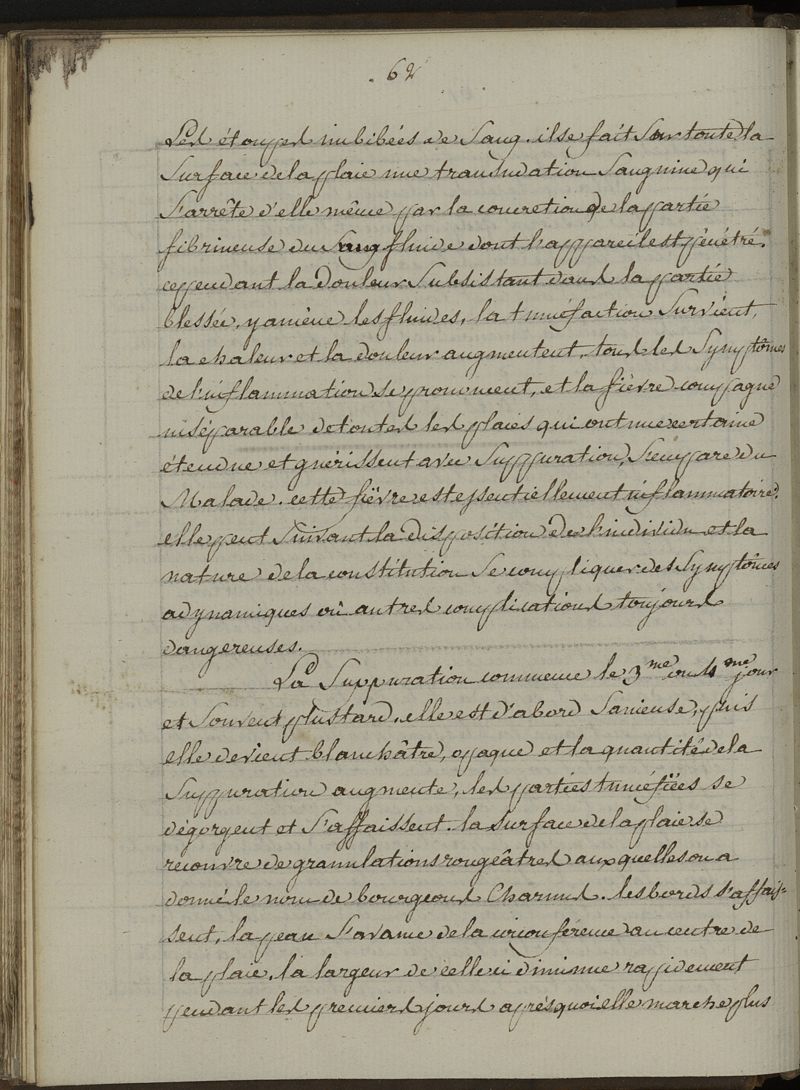 62
Les étoupes imbibées de Sang. il se fait Sur toute la
Surface de la plaie une transudation Sanguine qui
S'arrête d'elle même par la concretion de la partie
fibrineuse du Sang fluide dont l'appareil est pénétré.
cependant la Douleur Subsistant dans la partie
blessée, y amène les fluides, la tuméfaction Survient,
la chaleur et la douleur augmentent, tous les Symptômes
de l'inflammation se prononcent, et la fièvre compagne
inséparable de toutes les plaies qui ont une certaine
étendue et guérissent avec Suppuration, S'empare du
Malade. cette fièvre est essentiellement inflammatoire.
elle peut Suivant la disposition de l'individu et la
nature de la constitution Se compliquer des Symptômes
adynamiques ou autres complications toujours
dangereuses.
La Suppuration commence le 3me ou 4me jour
et Souvent plus tard. elle est d'abord Sanieuse, puis
elle devient blanchâtre, opaque et la quantité de la
Suppuration augmente, les parties tuméfiées se
dégorgent et S'affaissent. la surface de la plaie se
recouvre de granulations rougeâtres auxquelles on a
donné le nom de bourgeons Charnus. les bords s'affais-
sent, la peau S'avance de la circonférence au centre de
la plaie, la largeur de celle ci diminue rapidement
pendant les premiers jours après quoi elle marche plus